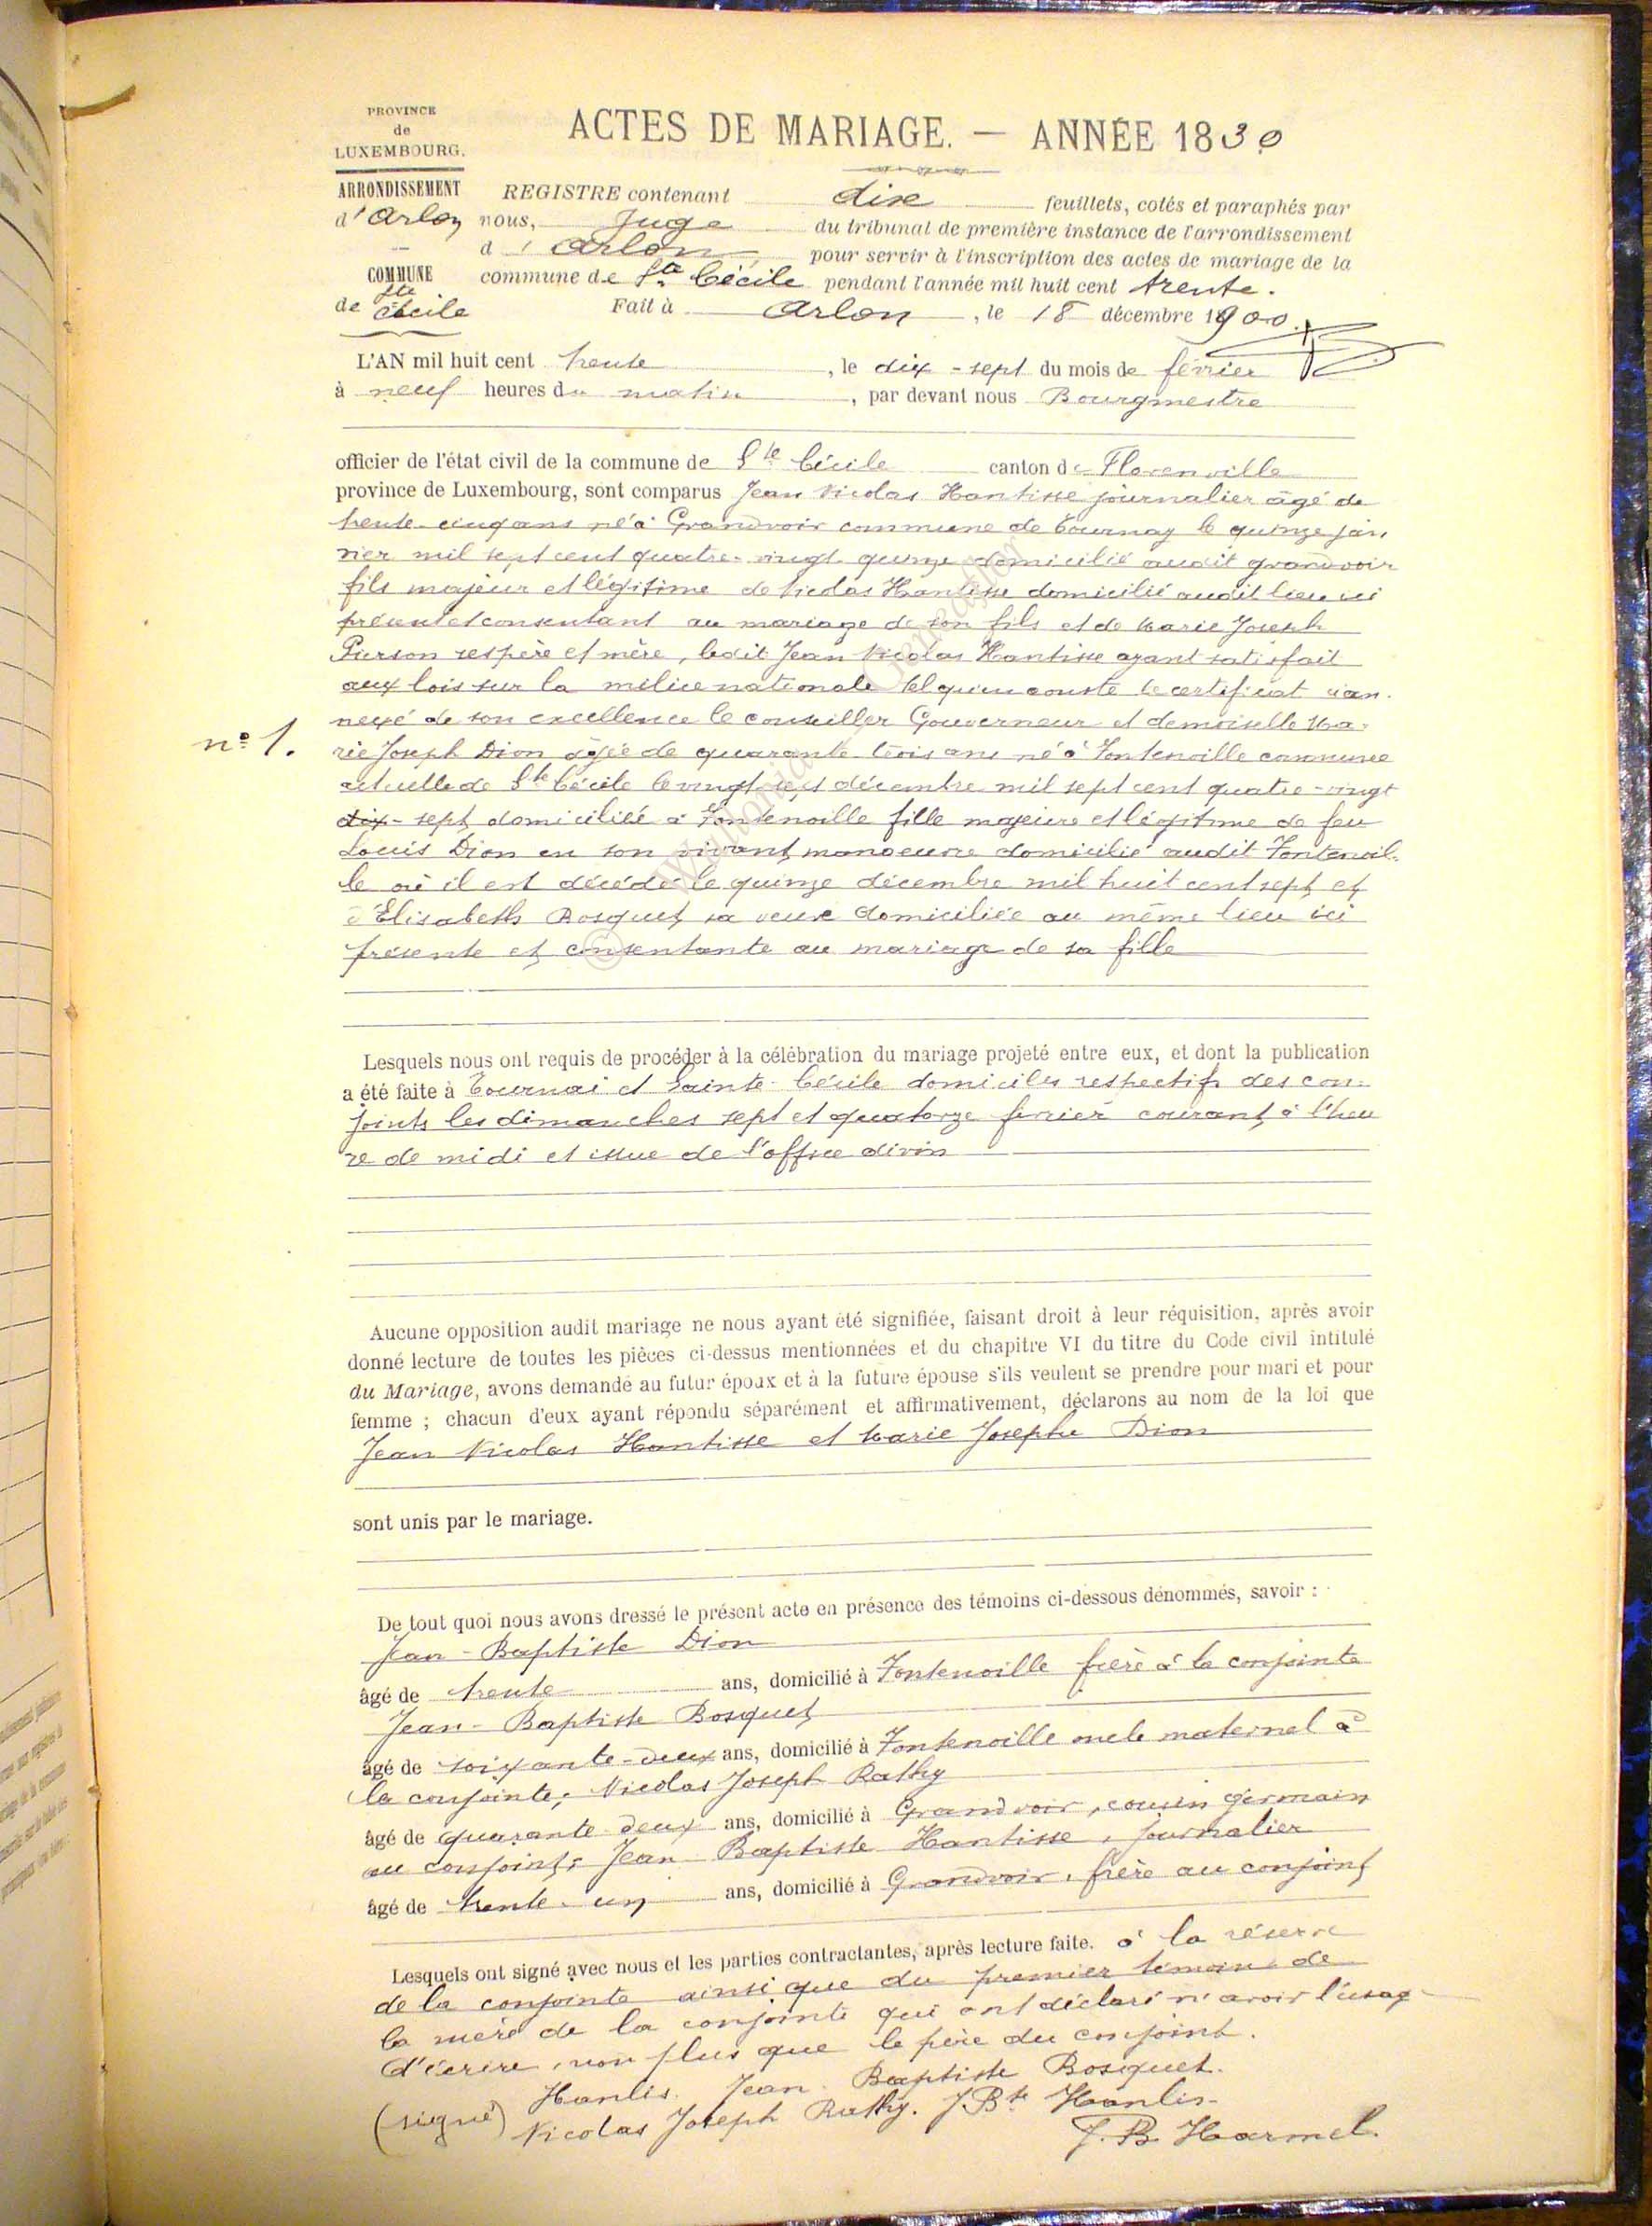 PROVINCE
de
LUXEMBOURG.
ACTES DE MARIAGE. — ANNÉE 1830
ARRONDISSEMENT
d'Arlon
COMMUNE
de Ste Cécile
REGISTRE contenant dix feuillets, cotés et paraphés par
nous, Juge du tribunal de première instance de l'arrondissement
d'Arlon, pour servir à l'inscription des actes de mariage de la
commune de Ste Cécile pendant l'année mil huit cent trente.
Fait à Arlon, le 18 décembre 1900.
L'AN mil huit cent trente, le dix-sept du mois de février
à neuf heures du matin, par devant nous Bourgmestre
officier de l'état civil de la commune de Ste Cécile canton de Florenville
province de Luxembourg, sont comparus Jean Nicolas Hantisse journalier âgé de
trente-cinq ans né à Grandvoir commune de Tournay le quinze jan
vier mil sept cent quatre-vingt quinze domicilié audit grandvoir
fils majeur et légitime de Nicolas Hantisse domicilié audit lieu ici
présent et consentant au mariage de son fils et de Marie Joseph
Pierson ses père et mère, ledit Jean Nicolas Hantisse ayant satisfait
aux lois sur la milice nationale tel qu'en conste le certificat ci an.
nexé de son excellence le conseiller Gouverneur et demoiselle Ma-
n° 1.
rie Joseph Dion âgée de quarante trois ans né à Fontenoille commune
actuelle de Ste Cécile le vingt sept décembre mil sept cent quatre-vingt
dix-sept domiciliée à Fontenoille fille majeure et légitime de feu
Louis Dion en son vivant manoeuvre domicilié audit Fontenoil-
le où il est décédé le quinze décembre mil huit cent sept et
d'Elisabeth Bosquet sa veuve domiciliée au même lieu ici
présente et consentante au mariage de sa fille
Lesquels nous ont requis de procéder à la célébration du mariage projeté entre eux, et dont la publication
a été faite à Tournai et Sainte-Cécile domiciles respectifs des con-
joints les dimanches sept et quatorze février courant à l'heu
re de midi et issue de l'office divin
Aucune opposition audit mariage ne nous ayant été signifiée, faisant droit à leur réquisition, après avoir
donné lecture de toutes les pièces ci-dessus mentionnées et du chapitre VI du titre du Code civil intitulé
du Mariage, avons demandé au futur époux et à la future épouse s'ils veulent se prendre pour mari et pour
femme ; chacun d'eux ayant répondu séparément et affirmativement, déclarons au nom de la loi que
Jean Nicolas Hantisse et Marie Josephe Dion
sont unis par le mariage.
De tout quoi nous avons dressé le présent acte en présence des témoins ci-dessous dénommés, savoir :
Jean-Baptiste Dion
âgé de trente ans, domicilié à Fontenoille frère à la conjointe
Jean-Baptiste Bosquet
âgé de soixante-deux ans, domicilié à Fontenoille oncle maternel à
la conjointe; Nicolas Joseph Rathy
âgé de quarante-deux ans, domicilié à Grandvoir, cousin germain
au conjoint; Jean Baptiste Hantisse, journalier
âgé de trente-un ans, domicilié à Grandvoir, frère au conjoint
Lesquels ont signé avec nous et les parties contractantes, après lecture faite. à la réserve
de la conjointe ainsi que du premier témoin de
la mère de la conjointe qui ont déclaré n'avoir l'usage
d'écrire, non plus que le père du conjoint.
(signé) Hanlis. Jean Baptiste Bosquet.
Nicolas Joseph Rathy. J. Bte Hanlis-
J. B. Harmel.